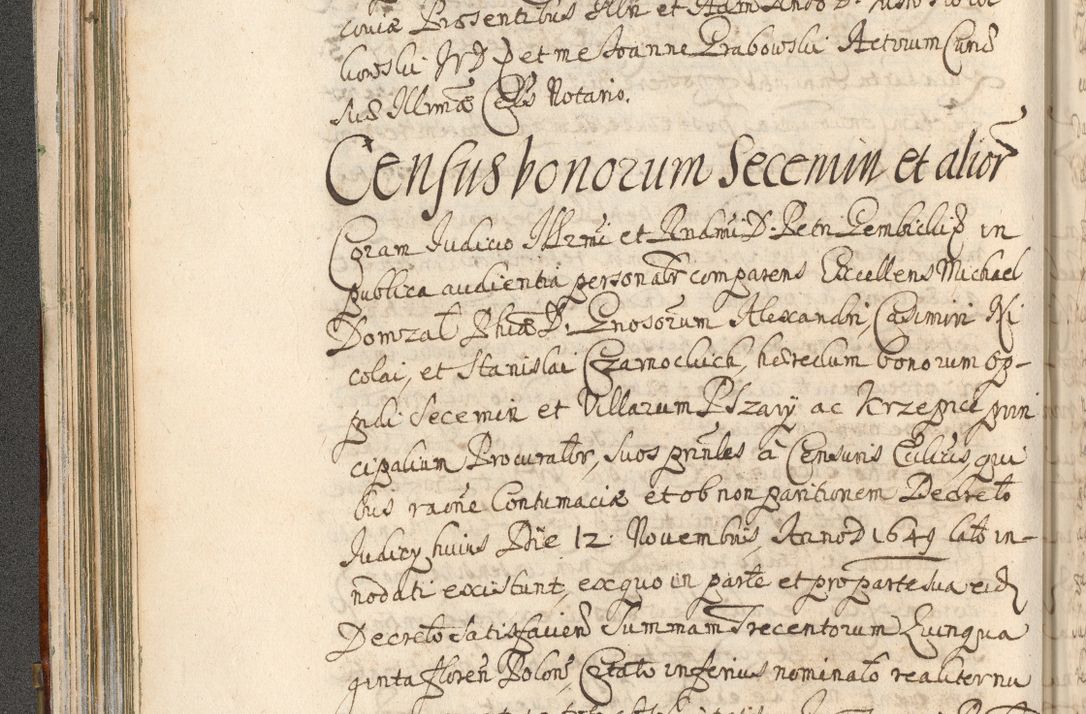 coviæ Præsentibus Illri et Adm
kowski JVD et me Joanne Grabowski Actorum Cund
suæ Illrmæ Cels Notario.
Census bonorum Secemin et alior
Coram Judicio Illrmi et Rndmi D: Petri Gembicki in
publica audientia personalr comparens Excellens Michael
Domzał Phiæ D. Gnosorum Alexandri, Casimiri Ni
colai, et Stanislai Czarnockich, hæredum bonorum op-
pidi Secemin et Villarum Pszary ac Krzepice prin
cipalium Procurator, suos prnles à Censuris Eccliis, qui
bus raone Contumaciæ et ob non paritionem Decreto
Judicy huius Die 12. Novembris Anno D 1649 lato in-
nodati existunt, ex quo in parte et pro parte sua eid
Decreto satisfaciend Summam Trecentorum Quinqua
ginta floren Polon, Citato inferius nominato realiter nu